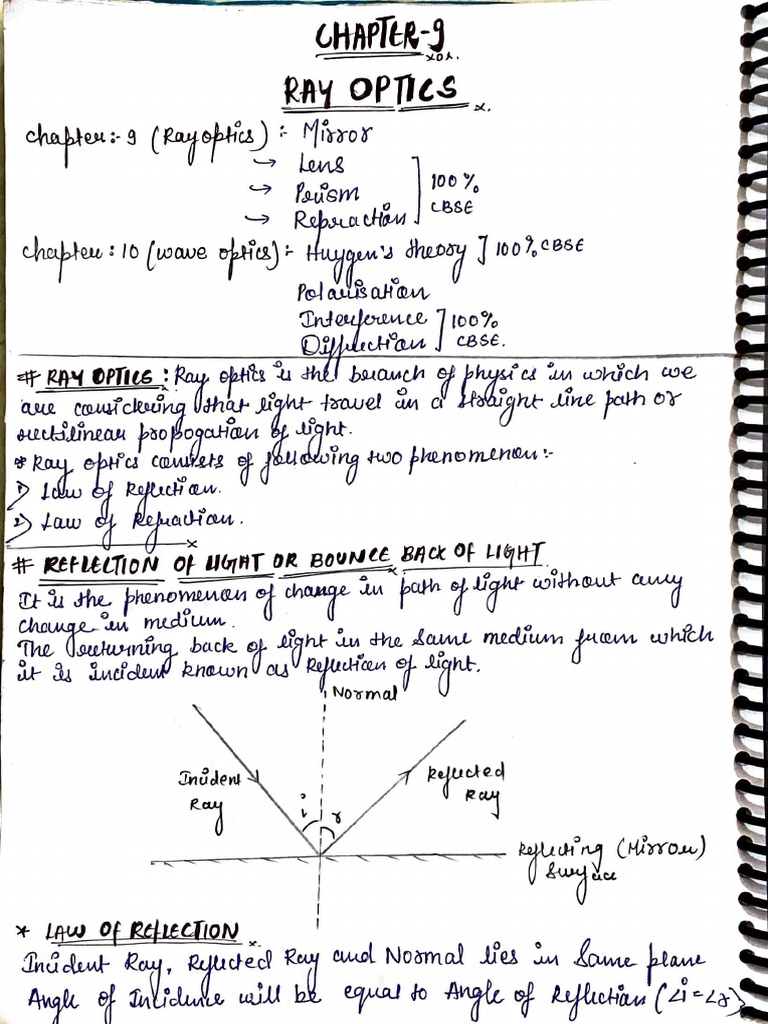 CHAPTER-9
RAY OPTICS
Chapter:- 9 (Ray optics) :- Mirror
→ Lens
→ Prism
→ Refraction
100%
CBSE
Chapter : 10 (wave optics) :- Huygen's theory ] 100% CBSE
Polarisation
Interference
Diffraction
100%
CBSE.
# RAY OPTICS : Ray optics is the branch of physics in which we
are considering that light travel in a straight line path or
rectilinear propogation of light.
* Ray optics consists of following two phenomenon:-
1) Law of Reflection.
2) Law of Refraction.
# REFLECTION OF LIGHT OR BOUNCE BACK OF LIGHT
It is the phenomenon of change in path of light without any
change in medium.
The returning back of light in the same medium from which
it is incident known as Reflection of light.
Normal
Incident
Ray
i
r
Reflected
Ray
Reflecting (Mirror)
Surface
* LAW OF REFLECTION
Incident Ray, Reflected Ray and Normal lies in Same plane
Angle of Incidence will be equal to Angle of Reflection (∠i=∠r)